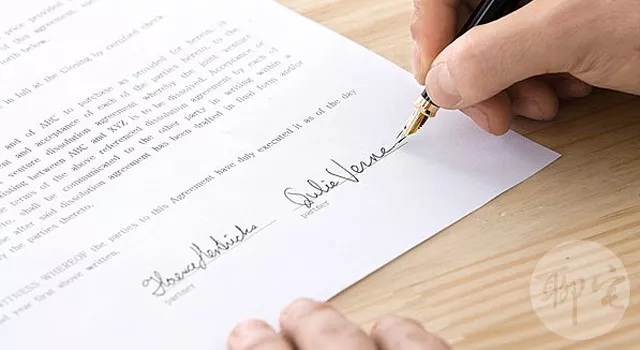 price provided
of this agreement,
forth below.
in full at the Closing by certified check
and of ABC to purchase as provided for herein, is
and acceptance of each of the parties hereto, to the
venture dissolution agreement whereby the joint venture
between ABC and XYZ is to be dissolved. Acceptance or
terms of the above referenced dissolution agreement by each of
shall be communicated to the other party in writing within a
after said dissolution agreement has been drafted in final form and/or
the parties thereto.
WITNESS WHEREOF the parties to this Agreement have duly executed it as of the day
year first above written.
Julie Verne
partner
partner
聊宅